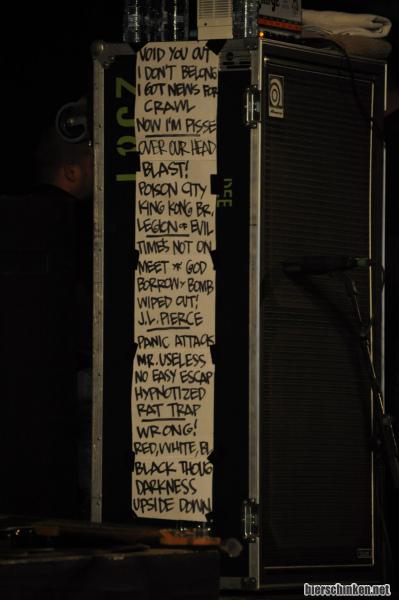 VOID YOU OUT
I DON'T BELONG
I GOT NEWS FOR
CRAWL
NOW I'M PISSE
OVER OUR HEAD
BLAST!
POISON CITY
KING KONG BR,
LEGION OF EVIL
TIMES NOT ON
MEET Y GOD
BORROW Y BOMB
WIPED OUT!
J.L. PIERCE
PANIC ATTACK
MR. USELESS
NO EASY ESCAP
HYPNOTIZED
RAT TRAP
WRONG!
RED, WHITE, BL
BLACK THOUG
DARKNESS
UPSIDE DOWN
bierschinken.net